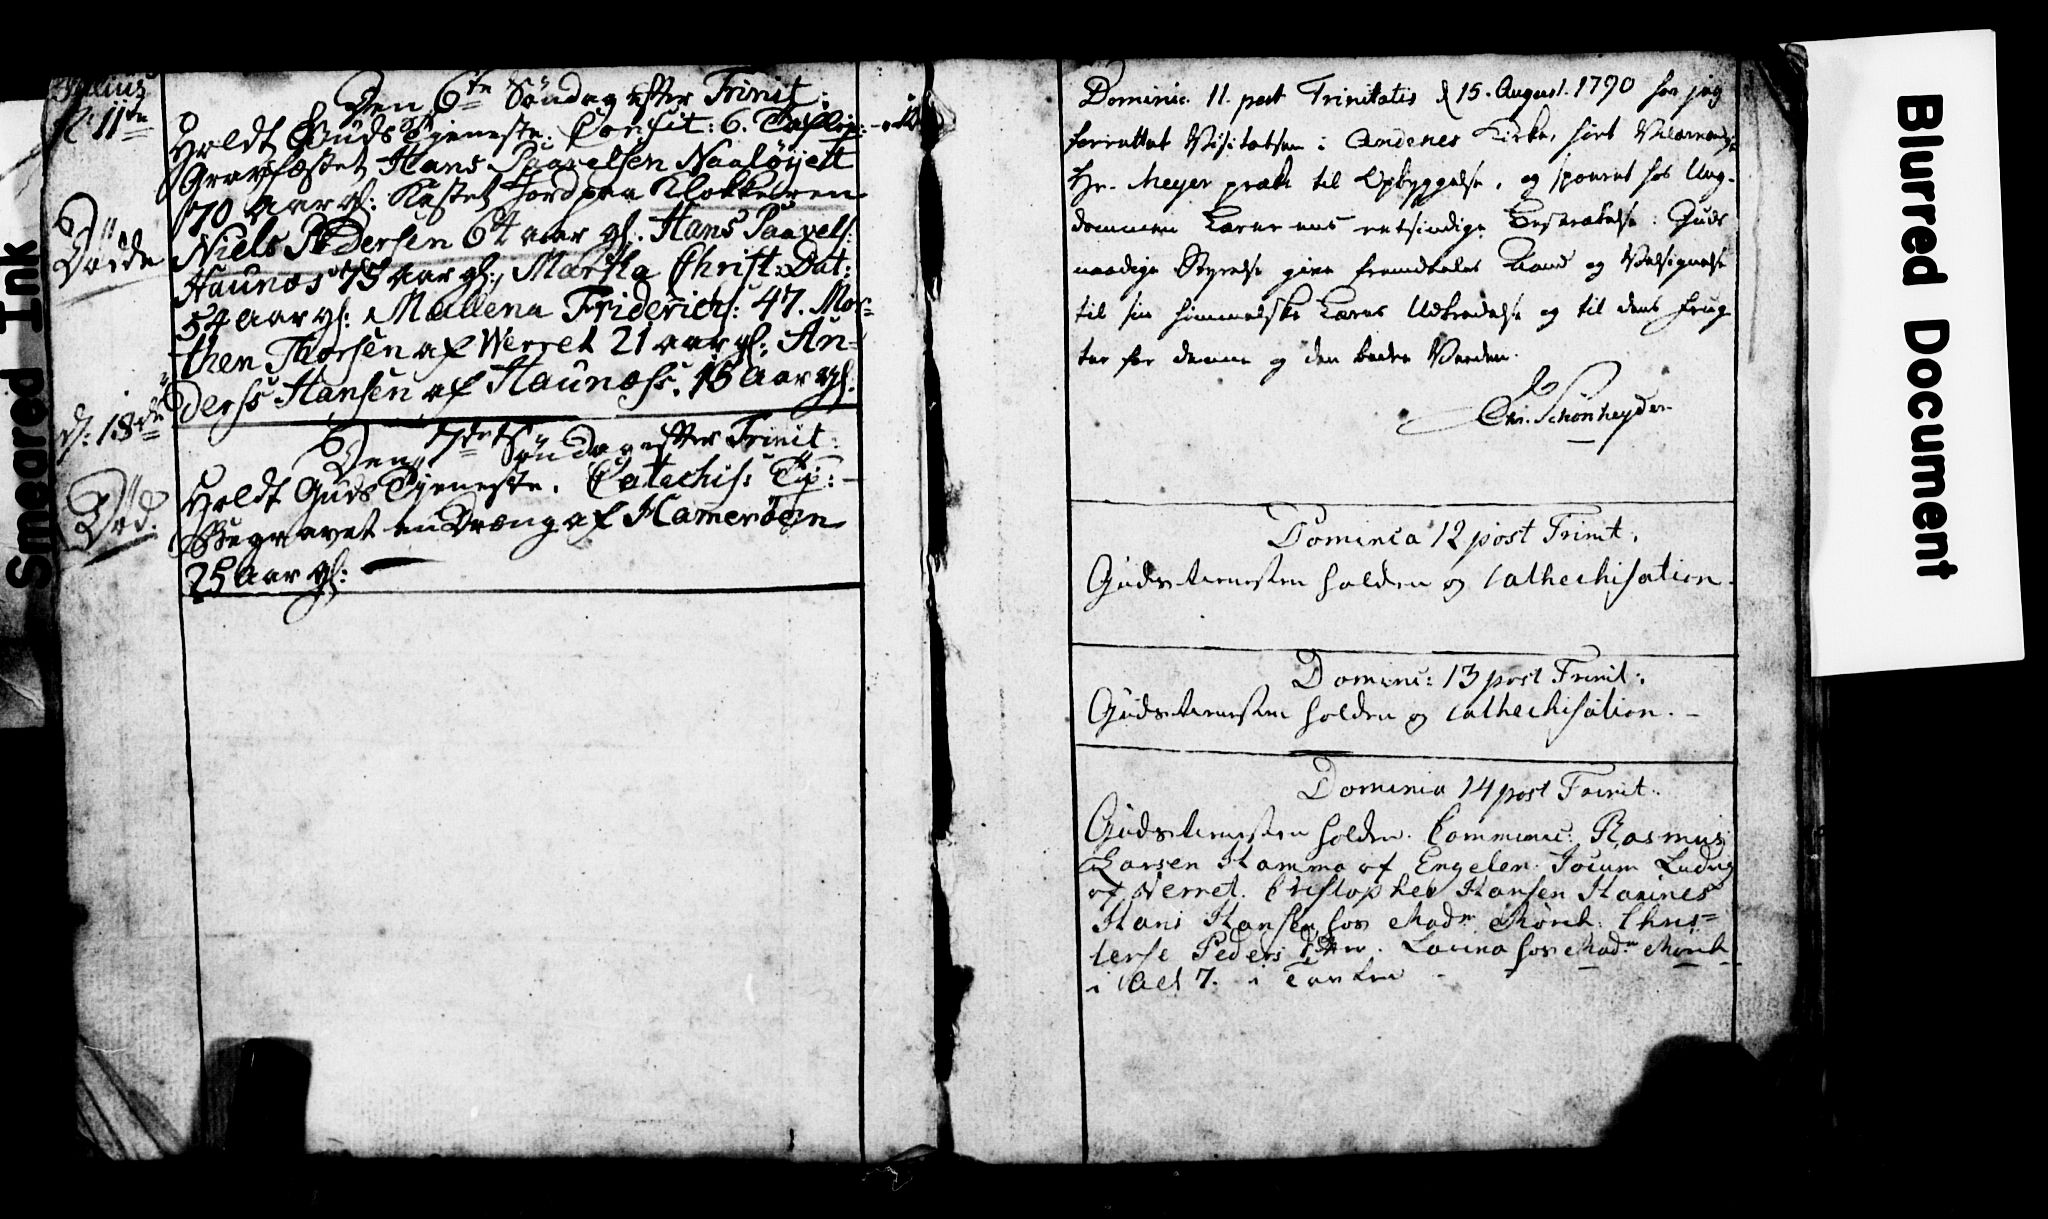 Julius
d: 11te
Den 6te Söndag efter Trinit:
Holdt Guds Tjeneste. Confit: 6.
Gravfæstet Hans Paavelsen Naalöyet
70 Aar gl: Kastet Jord paa Klokkeren
Niels Pedersen 64 aar gl. Hans Paavels:
Haunæs 75 aar gl: Martha Christ: Dat:
54 aar gl: Mallena Friderichs: 47. Mor-
then Thorsen af Werret 21 aar gl: An-
derss Hansen af Haunæss. 15 Aar gl.
Döde
d: 18de
Den 7de Söndag efter Trinit:
Holdt Guds Tjeneste. Catechis:
Begravet en Dreng af Hameröen
25 Aar gl:
Död.
Dominic. 11. post Trinitatis d 15. August. 1790 har jeg
forrettet Visitatsen i Andenes Kirke, hört Velærværdige
Hr. Meyer præke til Opbyggelse, og sporet hos Ung-
dommen Lærerens retsindige Bestræbelse. Guds
naadige Styrelse give fremdeles Aand og Velsignelse
til sin himmelske Læres Udbredelse og til dens Frug
ter for denne og den bedre Verden.
Chr. Schönheyder
Dominica 12 post Trinit:
Gudstienesten holden og Cathechisation.
Domini: 13 post Trinit:
Gudstienesten holden og Cathechisation. -
Dominica 14 post Trinit:
Gudstienesten holden. Communic: Rasmus
Larsen Hamma af Engelen. Jocum Ludvig
af Verret. Cristopher Hansen Haunes
Hans Hansen hos Madm Mörch. Chris-
terse Peders Dtter. Lavina hos Madm Mörch
i Alt 7.
Smeared Ink
Blurred Document